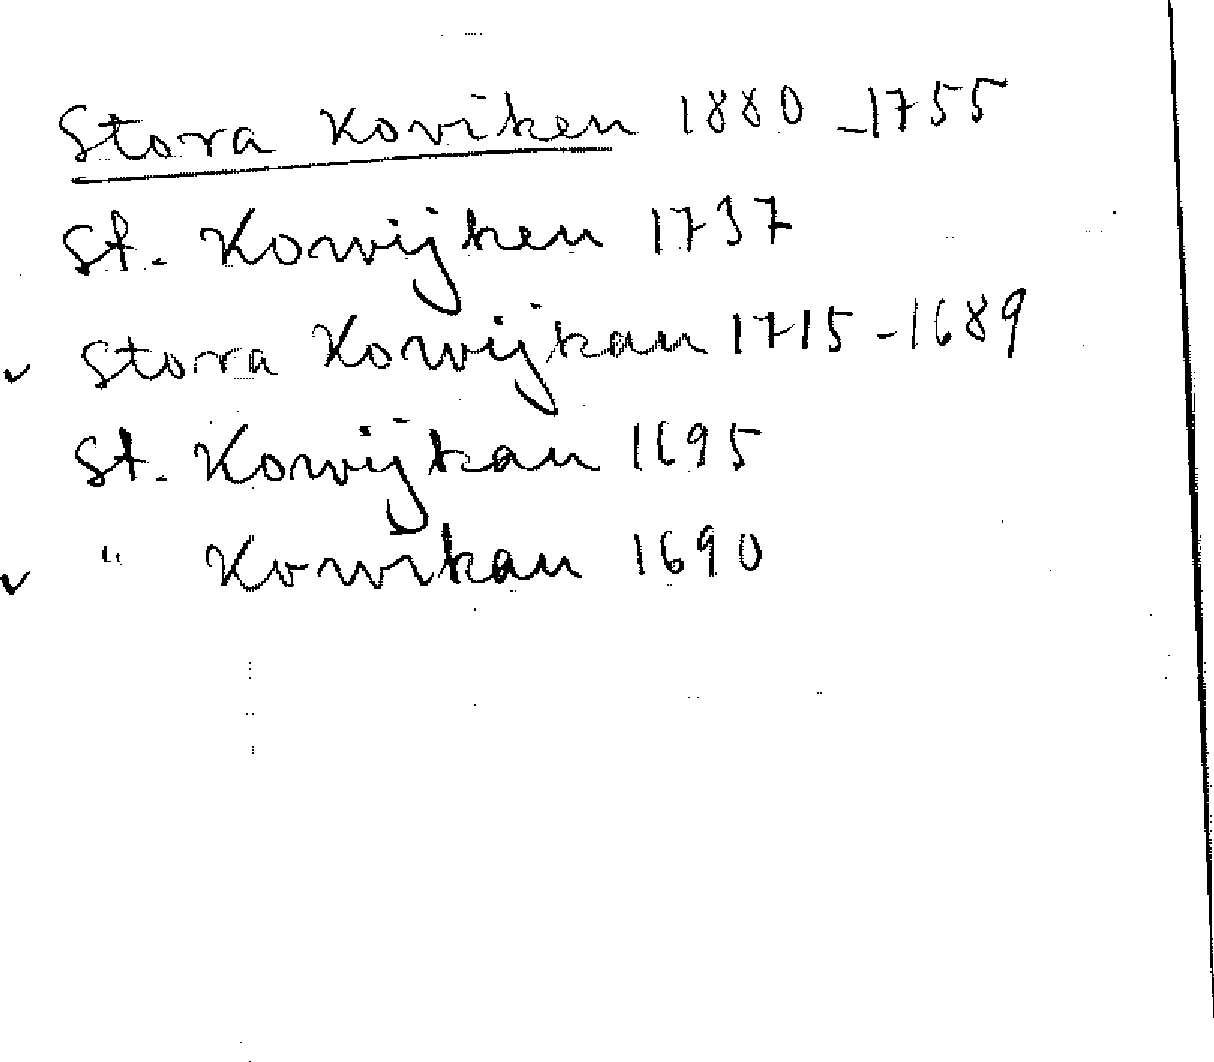 Stora Koviken 1880-1755
St. Kowijken 1737
v Stora Kowijkan 1715-1689
St. Kowijkan 1695
v " Kowikan 1690